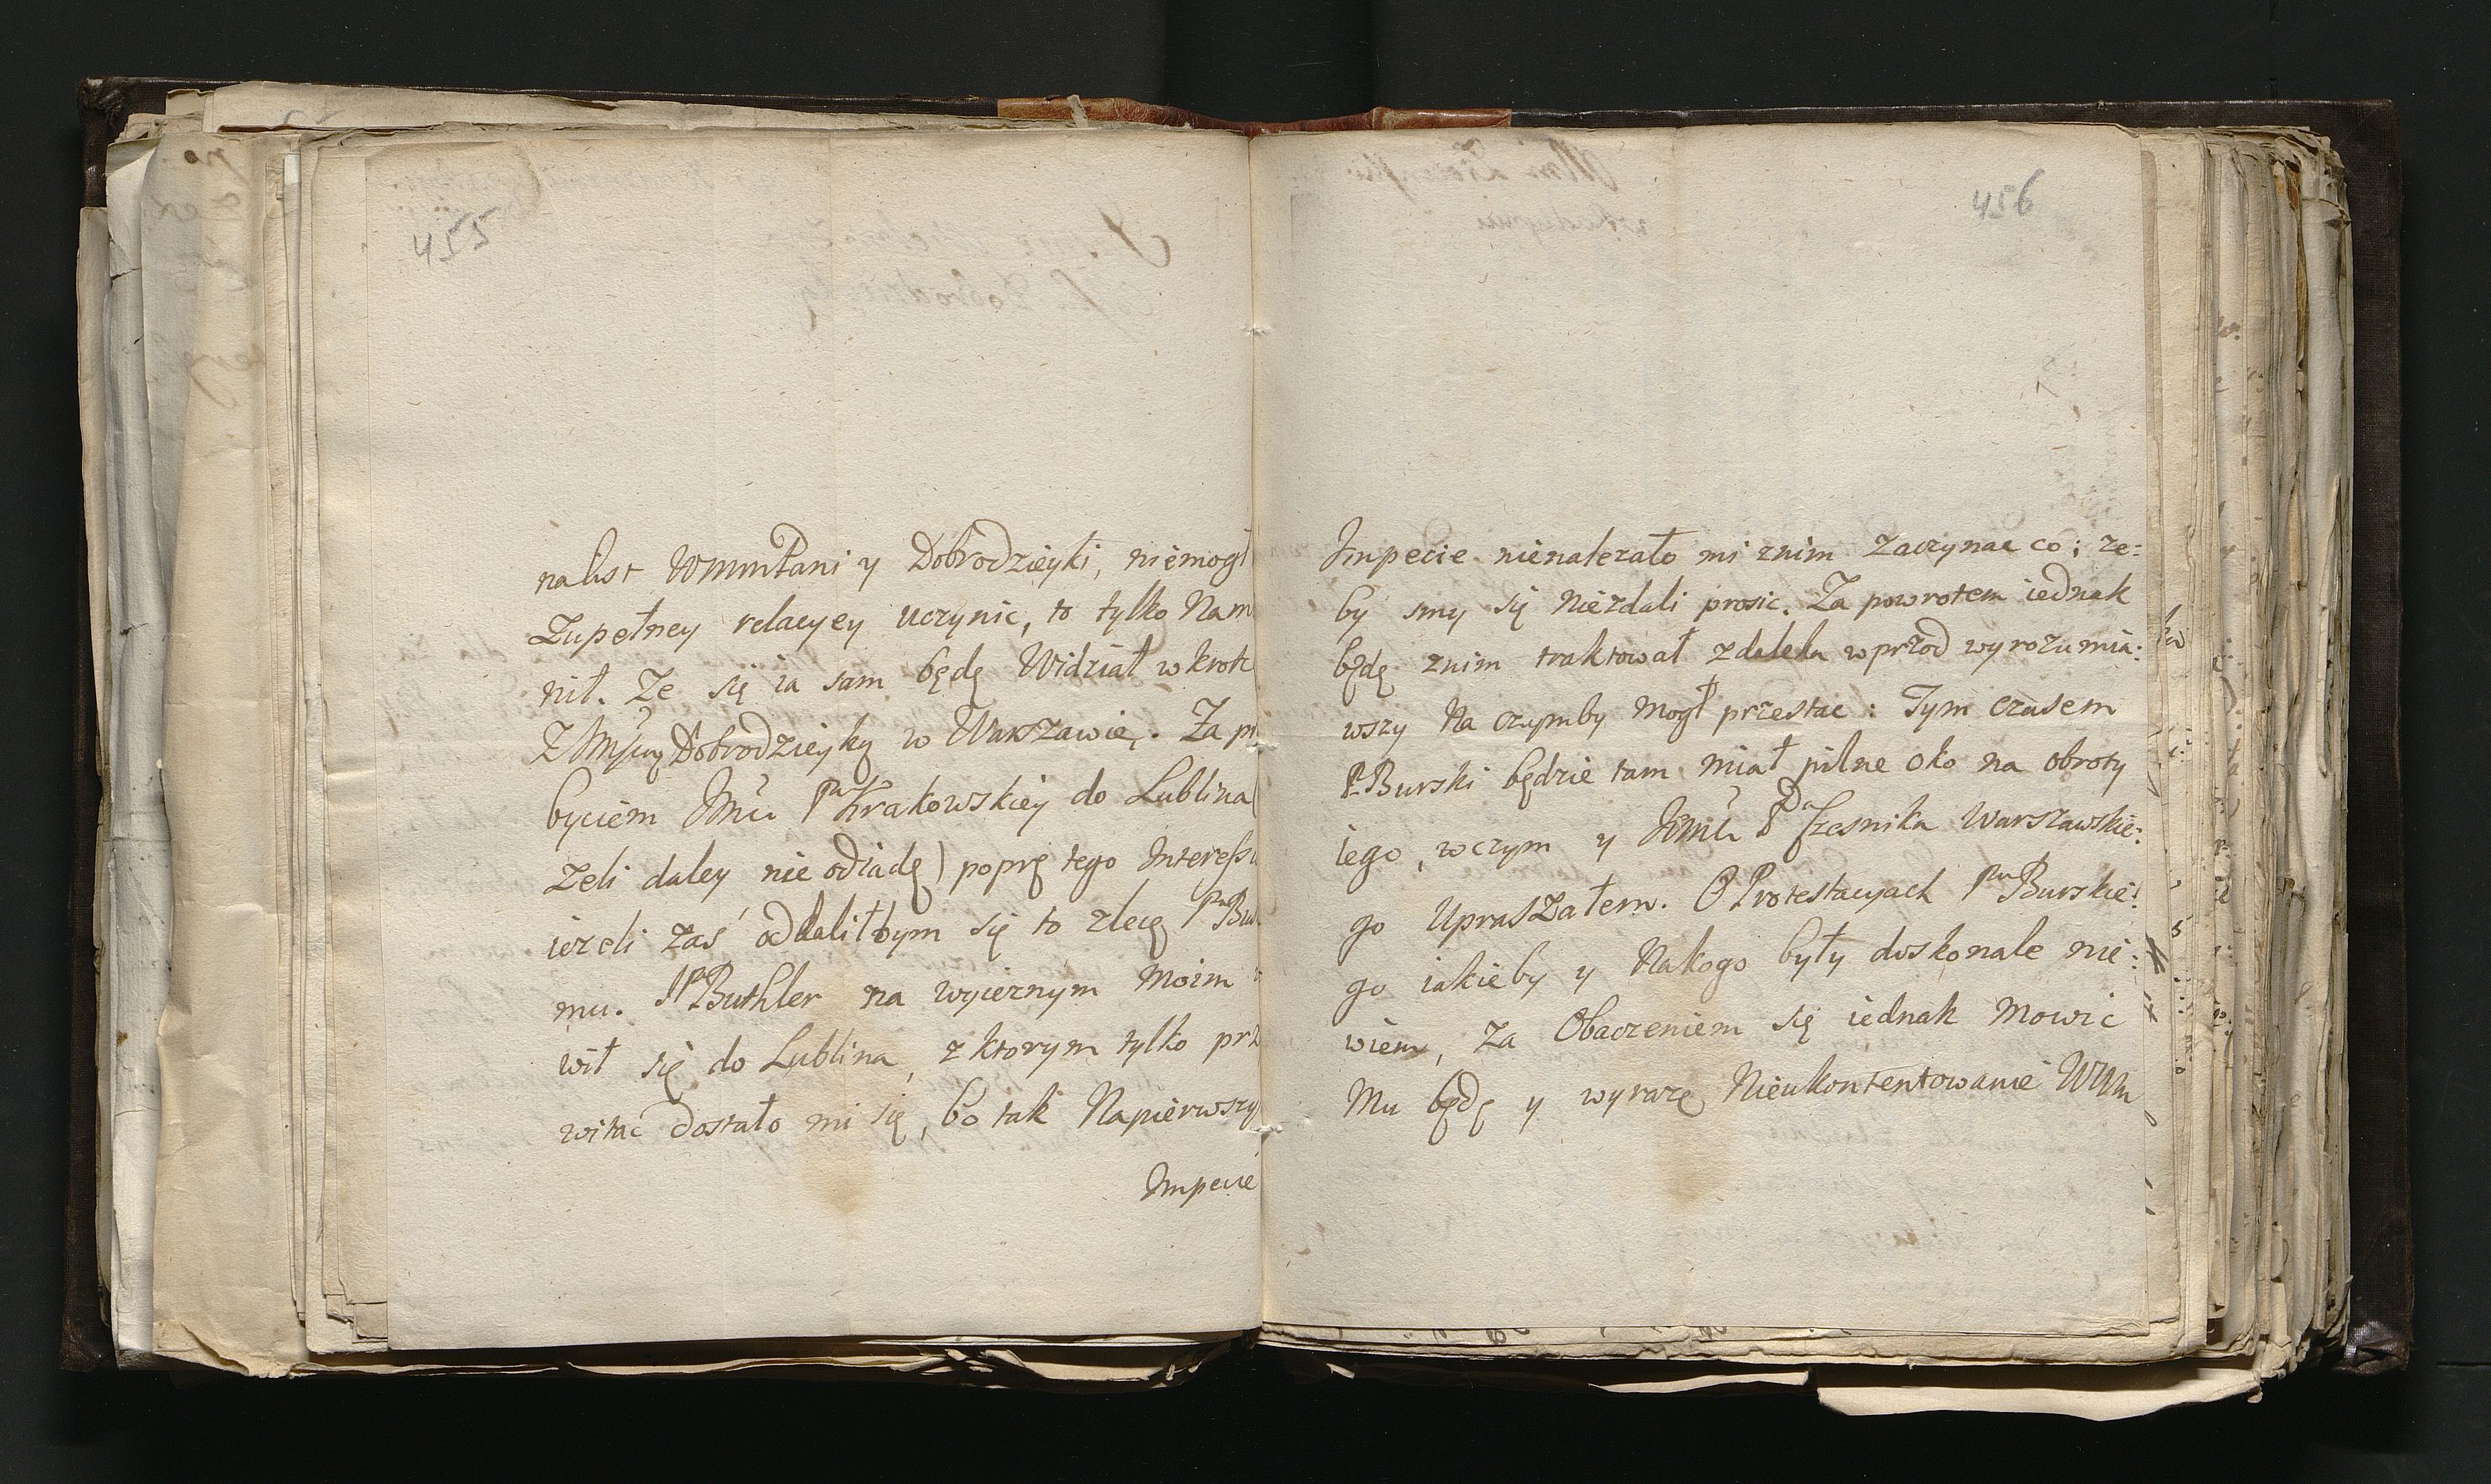 455
na list WMMPani y Dobrodzieyki, niemogł
Zupełney relacyey uczynic, to tylko Nam
nił. Ze się ia sam będę Widział wkrotc
Dobrodzieyką w Warszawie. Za pr
byciem Jmci Pa Krakowskiey do Lublina
zeli daley nie odiadę) poprę tego Interessu
iezeli zaś oddaliłbym się to zlecę Pu Bur
mu. JP Buthler na wyieznym moim
wił się do Lublina, z ktorym tylko prz
witac dostało mi się, bo tak Napierwszy
Impecie
456
Impecie nienalezało mi znim Zaczynac co; ze:
by smy się Niezdali prosic. Za powrotem iednak
będę znim traktował zdaleka wprzod wyrozumia:
wszy Na czymby mogł przestac: Tym czasem
P. Burski będzie tam miał pilne oko na obroty
iego, wczym y Jmci Pa Czesnika Warszawskie:
go Upraszałem. O Protestacyach Pa Burskie:
go iakieby y Nakogo były doskonale nie:
wiem, Za Obaczeniem się iednak Mowic
Mu będę y wyrazę Nieukontentowanie WM